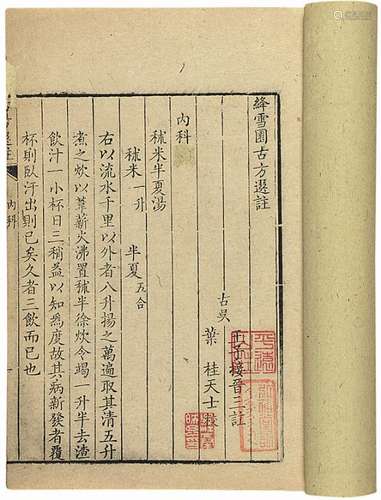 絳雪園古方選註
古吳
王子接晉三註
葉桂天士校
內科
秫米半夏湯
秫米一升 半夏五合
右以流水千里以外者八升揚之萬遍取其清五升
煮之炊以葦薪火沸置秫半徐炊令竭一升半去渣
飲汁一小杯日三稍益以知為度故其病新發者覆
杯則臥汗出則已矣久者三飲而已也
內科